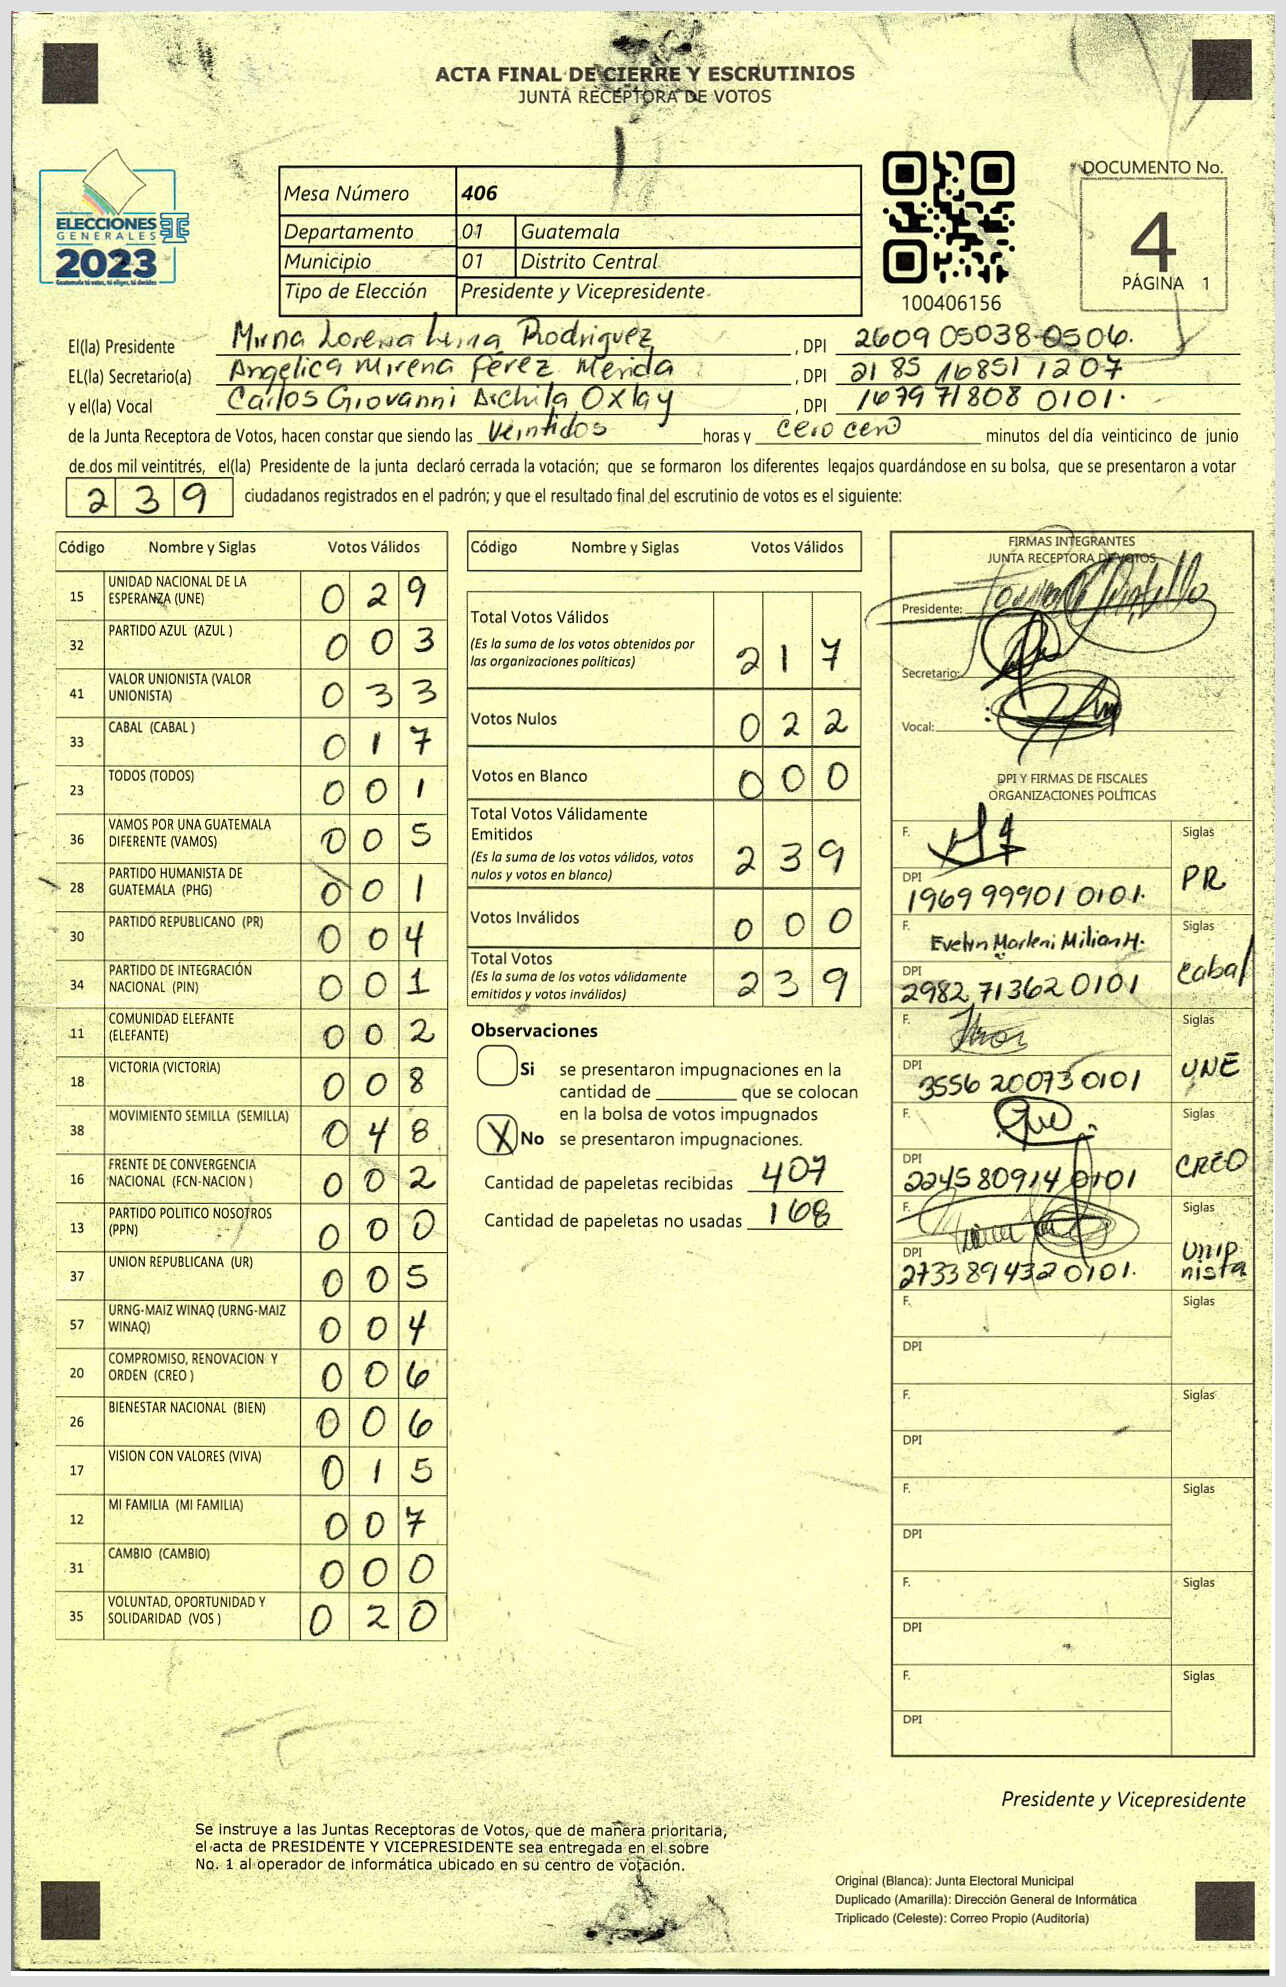 ACTA FINAL DE CIERRE Y ESCRUTINIOS
JUNTA RECEPTORA DE VOTOS
ELECCIONES
GENERALES
2023
Guatemala tú votas, tú eliges, tú decides
Mesa Número 406
Departamento 01 Guatemala
Municipio 01 Distrito Central
Tipo de Elección Presidente y Vicepresidente
100406156
DOCUMENTO No.
4
PÁGINA 1
El(la) Presidente Mirna Lorena Rodriguez, DPI 2609 05038 0506.
EL(la) Secretario(a) Angelica Mirena Pérez Merida, DPI 2185 16851 1207
y el(la) Vocal Carlos Giovanni Archila Oxlaj, DPI 1679 71808 0101.
de la Junta Receptora de Votos, hacen constar que siendo las Veintidos horas y cero cero minutos del día veinticinco de junio
de dos mil veintitrés, el(la) Presidente de la junta declaró cerrada la votación; que se formaron los diferentes legajos guardándose en su bolsa, que se presentaron a votar
239 ciudadanos registrados en el padrón; y que el resultado final del escrutinio de votos es el siguiente:
Código Nombre y Siglas Votos Válidos
15 UNIDAD NACIONAL DE LA ESPERANZA (UNE) 029
32 PARTIDO AZUL (AZUL ) 003
41 VALOR UNIONISTA (VALOR UNIONISTA) 033
33 CABAL (CABAL ) 017
23 TODOS (TODOS) 001
36 VAMOS POR UNA GUATEMALA DIFERENTE (VAMOS) 005
28 PARTIDO HUMANISTA DE GUATEMALA (PHG) 001
30 PARTIDO REPUBLICANO (PR) 004
34 PARTIDO DE INTEGRACIÓN NACIONAL (PIN) 001
11 COMUNIDAD ELEFANTE (ELEFANTE) 002
18 VICTORIA (VICTORIA) 008
38 MOVIMIENTO SEMILLA (SEMILLA) 048
16 FRENTE DE CONVERGENCIA NACIONAL (FCN-NACION ) 002
13 PARTIDO POLITICO NOSOTROS (PPN) 000
37 UNION REPUBLICANA (UR) 005
57 URNG-MAIZ WINAQ (URNG-MAIZ WINAQ) 004
20 COMPROMISO, RENOVACION Y ORDEN (CREO ) 006
26 BIENESTAR NACIONAL (BIEN) 006
17 VISION CON VALORES (VIVA) 015
12 MI FAMILIA (MI FAMILIA) 007
31 CAMBIO (CAMBIO) 000
35 VOLUNTAD, OPORTUNIDAD Y SOLIDARIDAD (VOS ) 020
Código Nombre y Siglas Votos Válidos
Total Votos Válidos
(Es la suma de los votos obtenidos por
las organizaciones políticas) 217
Votos Nulos 022
Votos en Blanco 000
Total Votos Válidamente
Emitidos
(Es la suma de los votos válidos, votos
nulos y votos en blanco) 239
Votos Inválidos 000
Total Votos
(Es la suma de los votos válidamente
emitidos y votos inválidos) 239
Observaciones
Si se presentaron impugnaciones en la
cantidad de ________ que se colocan
en la bolsa de votos impugnados
X No se presentaron impugnaciones.
Cantidad de papeletas recibidas 407
Cantidad de papeletas no usadas 168
FIRMAS INTEGRANTES
JUNTA RECEPTORA DE VOTOS
Presidente:
Secretario:
Vocal:
DPI Y FIRMAS DE FISCALES
ORGANIZACIONES POLÍTICAS
F. Siglas PR
DPI 1969 99901 0101.
F. Evelyn Marleni Milian H. Siglas Cabal
DPI 2982 71362 0101
F. Siglas UNE
DPI 3556 20073 0101
F. Siglas CREO
DPI 2245 80914 0101
F. Siglas Unionista
DPI 2733 89432 0101.
F. Siglas
DPI
F. Siglas
DPI
F. Siglas
DPI
F. Siglas
DPI
F. Siglas
DPI
Presidente y Vicepresidente
Se instruye a las Juntas Receptoras de Votos, que de manera prioritaria,
el acta de PRESIDENTE Y VICEPRESIDENTE sea entregada en el sobre
No. 1 al operador de informática ubicado en su centro de votación.
Original (Blanca): Junta Electoral Municipal
Duplicado (Amarilla): Dirección General de Informática
Triplicado (Celeste): Correo Propio (Auditoría)